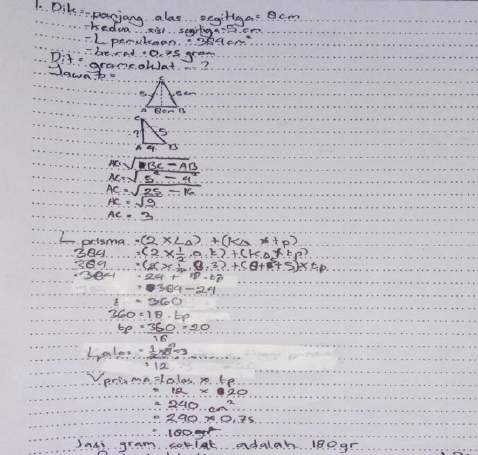 1. Dik = - panjang alas segitiga = 8 cm
- kedua sisi segitiga = 5 cm
- L permukaan = 384 cm²
- berat = 0.75 gram
Dit = gram coklat ...?
Jawab =
C
5 5cm
A 8cm B
C
? 5
A 4 B
AC = √BC - AB
AC = √5² - 4²
AC = √25 - 16
AC = √9
AC = 3
L prisma = (2 × L△) + (K△ × tp)
384 = (2 × 1/2 . a. t) + (K△ × tp)
384 = (2 × 1/2 . 8. 3) + (8+5+5) × tp
384 = 24 + 18 . tp
= 384 - 24
= 360
360 = 18 . tp
tp = 360 = 20
18
L alas = 1/2 × 8 × 3
= 12
V prisma = L alas × tp
= 12 × 20
= 240 cm²
= 240 × 0.75
= 180 gr
Jadi gram coklat adalah 180 gr